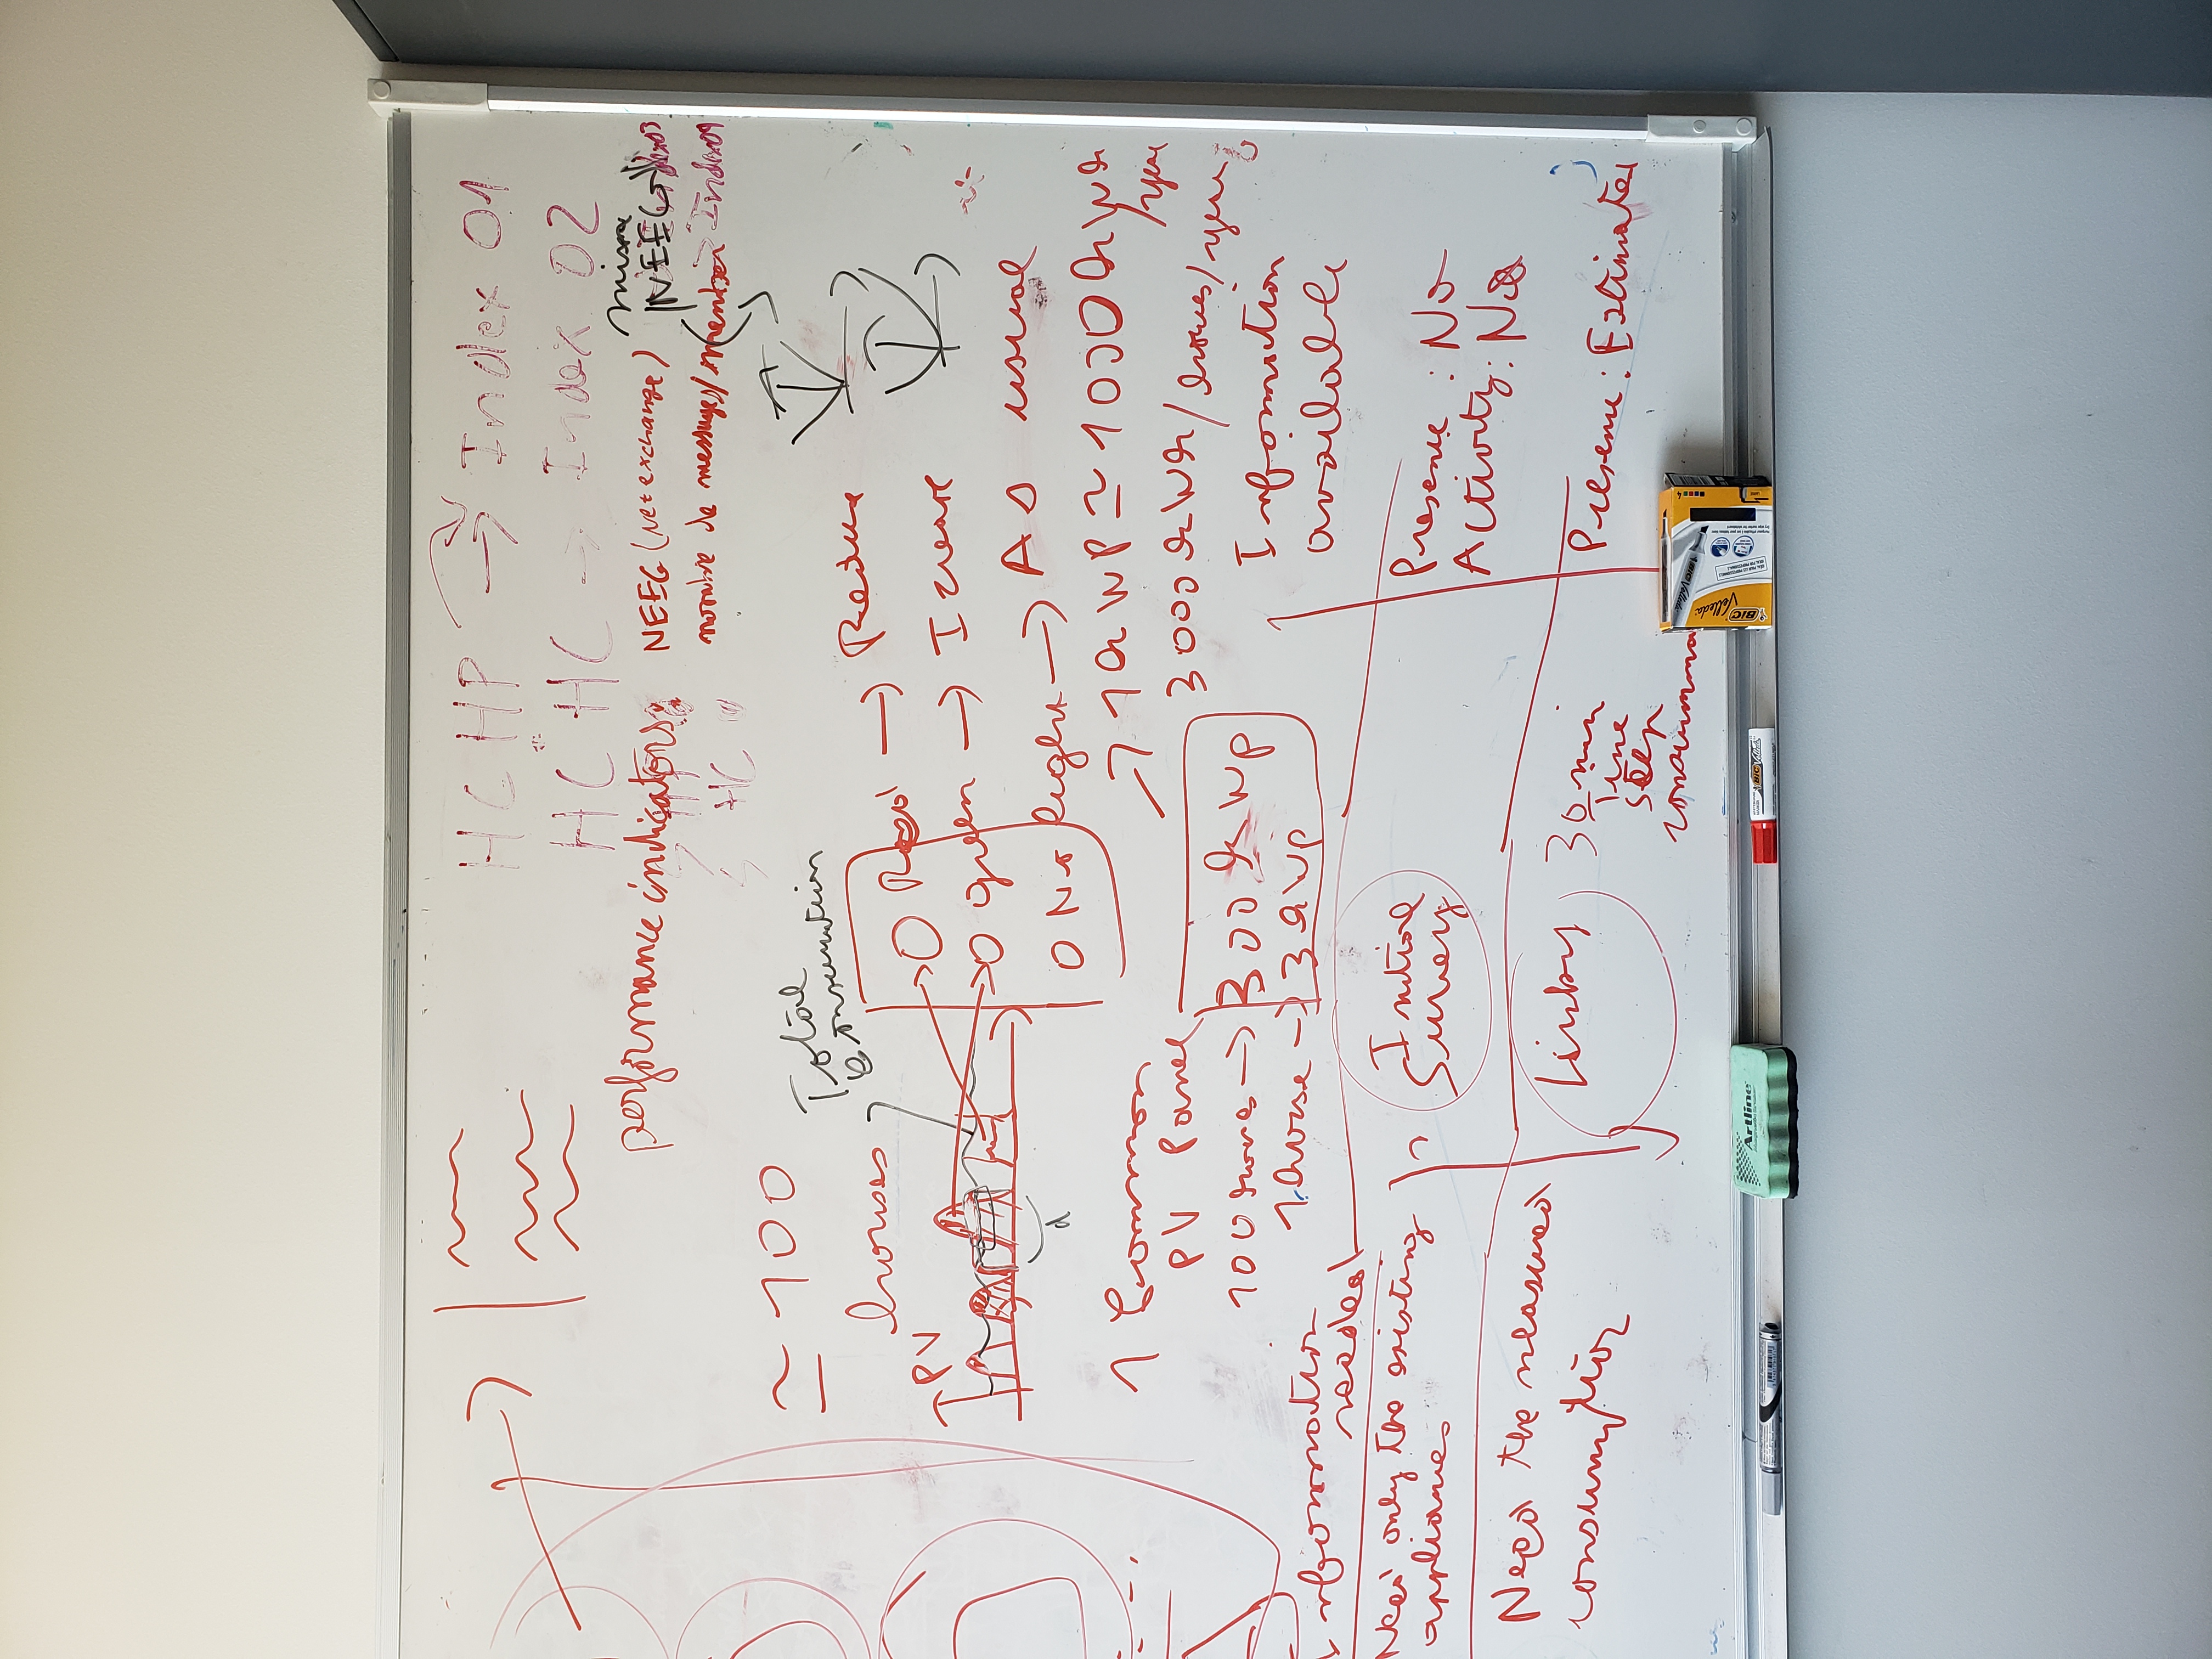 HC HP → Index 01
HC HC → Index 02
performance indicators:
NEEG (net exchange)
NEEG
HC
nombre de messages/member
≃ 100
houses
Total
Consumption
PV
d
O Red → Reduce
O green → Icrease
O No light → As usual
1 Common
PV Panel
100 houses → 300 kWp
1 house → 3 kWp
1 kWp ≃ 1000 kWh
/year
3000 kWh/houses/year
Information
needed
Information
available
Need only the existing
appliances
Initial
Survey
Presence : No
Activity : No
Need the measured
consumption
Linky
30 min
Time
step
Presence : Estimated
Artline
BIC Velleda
BIC Velleda